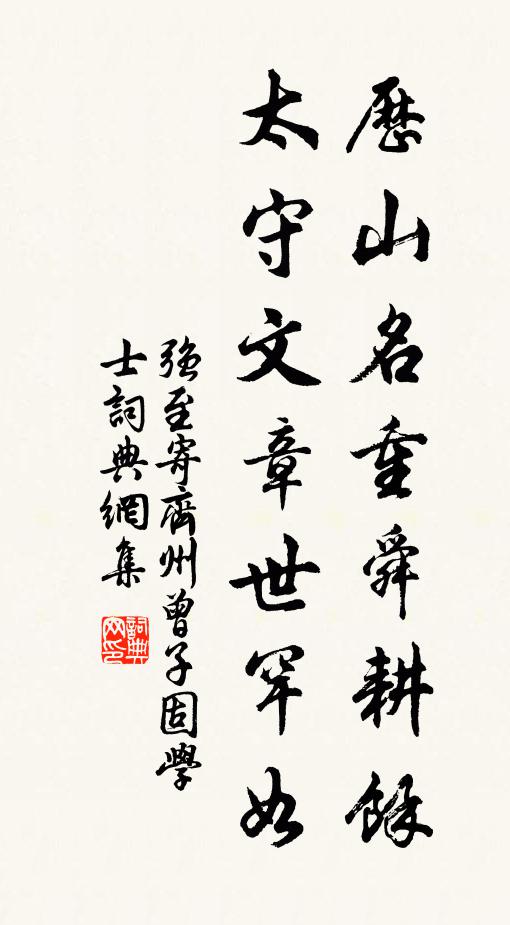 歷山名重舜耕餘
太守文章世罕如
強至寄齊州曾子固學
士詞典網集
詞典网印